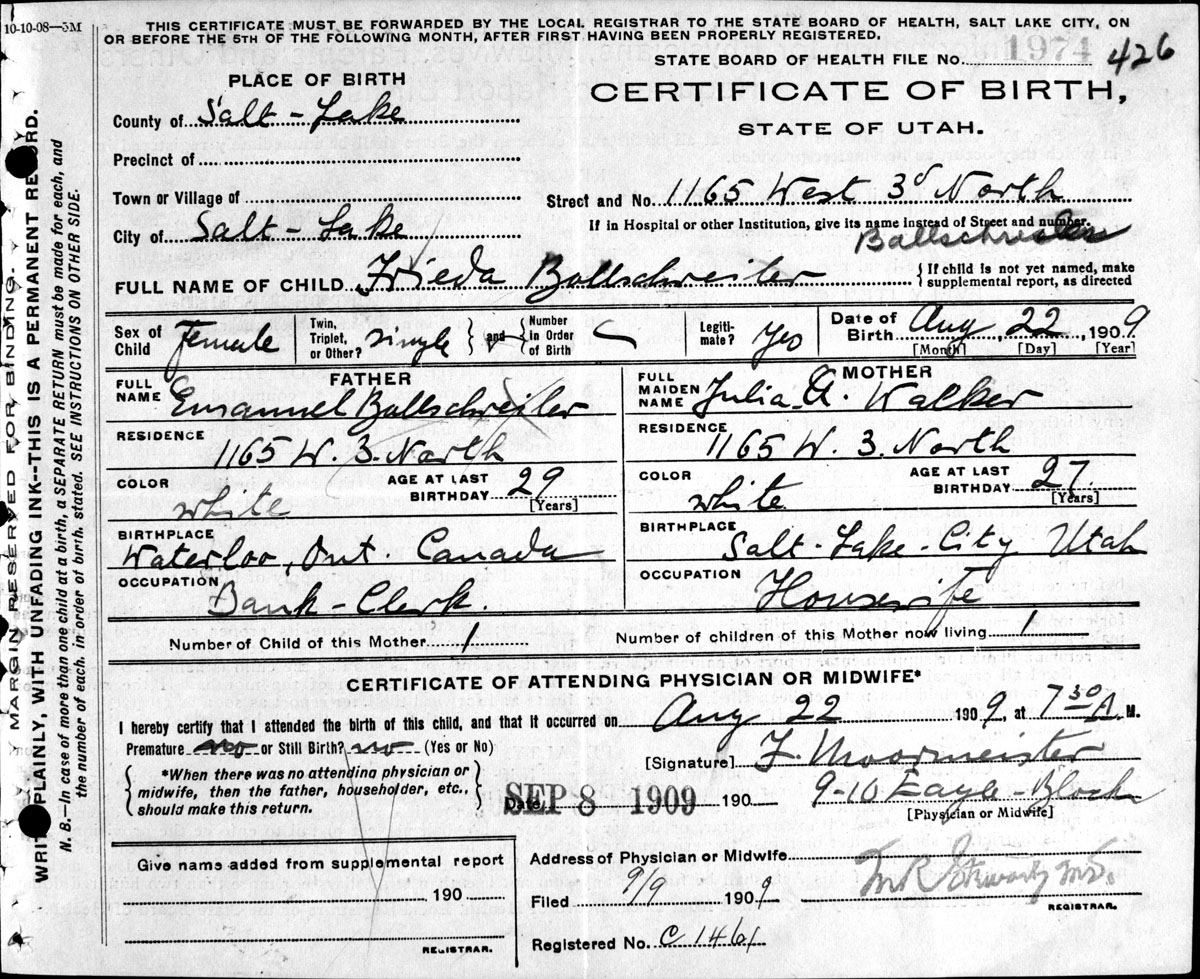 10-10-08—5M
THIS CERTIFICATE MUST BE FORWARDED BY THE LOCAL REGISTRAR TO THE STATE BOARD OF HEALTH, SALT LAKE CITY, ON
OR BEFORE THE 5TH OF THE FOLLOWING MONTH, AFTER FIRST HAVING BEEN PROPERLY REGISTERED.
STATE BOARD OF HEALTH FILE No. 1974 426
PLACE OF BIRTH
CERTIFICATE OF BIRTH,
STATE OF UTAH.
County of Salt - Lake
Precinct of
Town or Village of
Street and No. 1165 West 3d North
City of Salt - Lake
If in Hospital or other Institution, give its name instead of Street and number.
FULL NAME OF CHILD Frieda Bollschweiler
{ If child is not yet named, make
supplemental report, as directed
Sex of Child Female
Twin, Triplet, or Other? single } and { Number in Order of Birth
Legiti- mate? Yes
Date of Birth Aug 22, 1909
[Month] [Day] [Year]
FATHER
FULL NAME Emanuel Bollschweiler
RESIDENCE
1165 W. 3. North
COLOR white
AGE AT LAST BIRTHDAY 29
[Years]
BIRTHPLACE
Waterloo, Ont. Canada
OCCUPATION
Bank - Clerk.
MOTHER
FULL MAIDEN NAME Julia A. Walker
RESIDENCE
1165 W. 3. North
COLOR white
AGE AT LAST BIRTHDAY 27
[Years]
BIRTHPLACE
Salt - Lake - City Utah
OCCUPATION
Housewife
Number of Child of this Mother 1
Number of children of this Mother now living 1
CERTIFICATE OF ATTENDING PHYSICIAN OR MIDWIFE*
I hereby certify that I attended the birth of this child, and that it occurred on Aug 22 1909, at 7 30 A. M.
Premature no or Still Birth? no (Yes or No)
{ *When there was no attending physician or
midwife, then the father, householder, etc.,
should make this return. }
[Signature] F Moormeister
Date, SEP 8 1909 190 9-10 Eagle - Block
[Physician or Midwife]
Give name added from supplemental report
190
REGISTRAR.
Address of Physician or Midwife
Filed 9/9 1909
REGISTRAR.
Registered No. C 1461
MARGIN RESERVED FOR BINDING.
WRITE PLAINLY, WITH UNFADING INK--THIS IS A PERMANENT RECORD.
N. B.—In case of more than one child at a birth, a SEPARATE RETURN must be made for each, and
the number of each, in order of birth, stated. SEE INSTRUCTIONS ON OTHER SIDE.